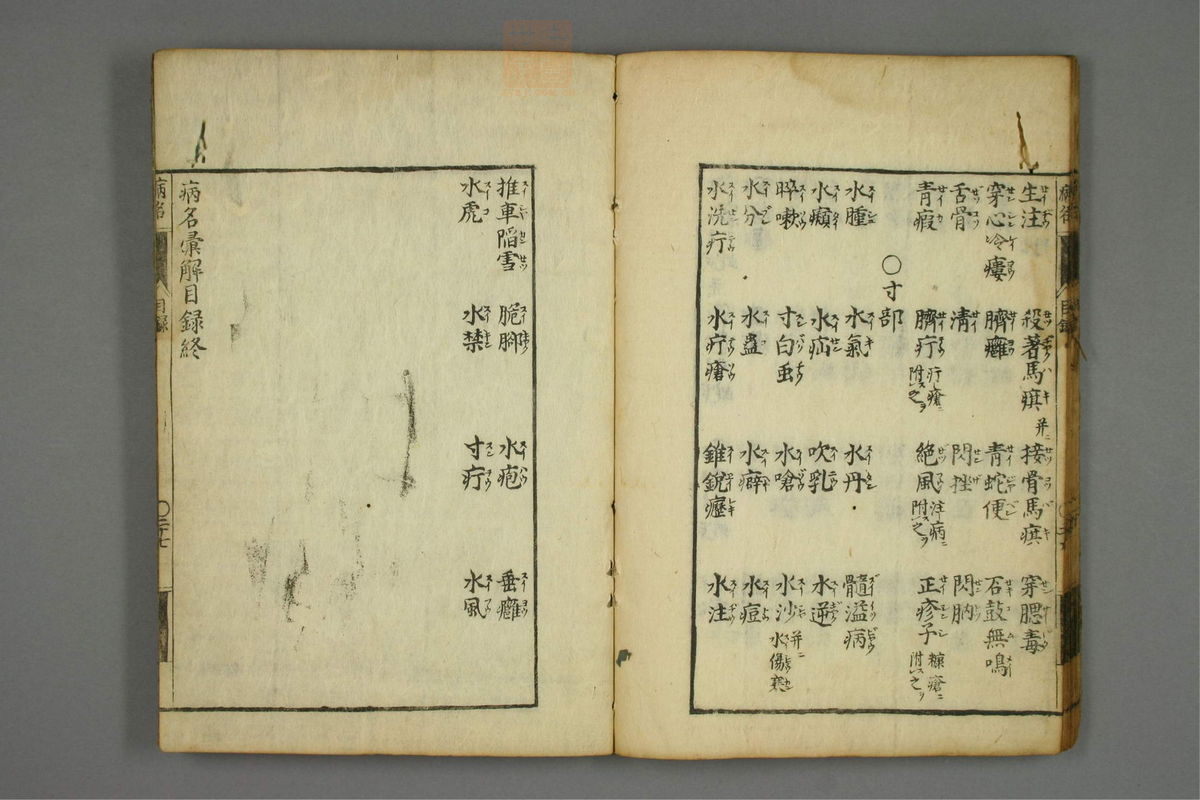 生注 殺著馬㾵 并ニ 接骨馬㾵 穿腮毒
穿心冷瘻 臍癰 青蛇便 石鼓無鳴
舌骨 清 閃挫 閃肭
青瘕 臍疔 疔瘡ニ附ス之ヲ 絶風 注病ニ附ス之ヲ 正疹子 糠瘡ニ附ス之ヲ
〇寸部
水腫 水氣 水丹 髓溢病
水癪 水疝 吹乳 水逆
啐嗽 寸白虫 水嗆 水沙 并ニ水傷寒
水分 水蠱 水癖 水痘
水洗疔 水疔瘡 錐銳癧 水注
病名 目録 〇三十七
推車陷雪 脆脚 水疱 垂癰
水虎 水禁 寸疔 水風
病名彙解目録終
病名 目録 〇三十七